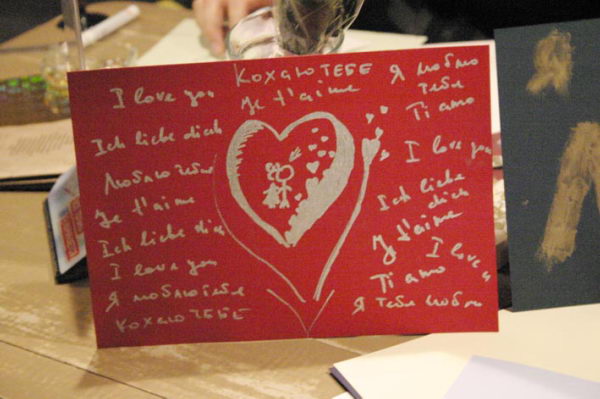 I love you
Ich liebe dich
Люблю тебе
Je t'aime
Ich liebe dich
I love you
Я люблю тебе
КОХАЮ ТЕБЕ
КОХАЮ ТЕБЕ
Je t'aime
Я люблю
тебе
Ti amo
I love you
Ich liebe
dich
Je t'aime
I love u
Ti amo
Я тебе люблю